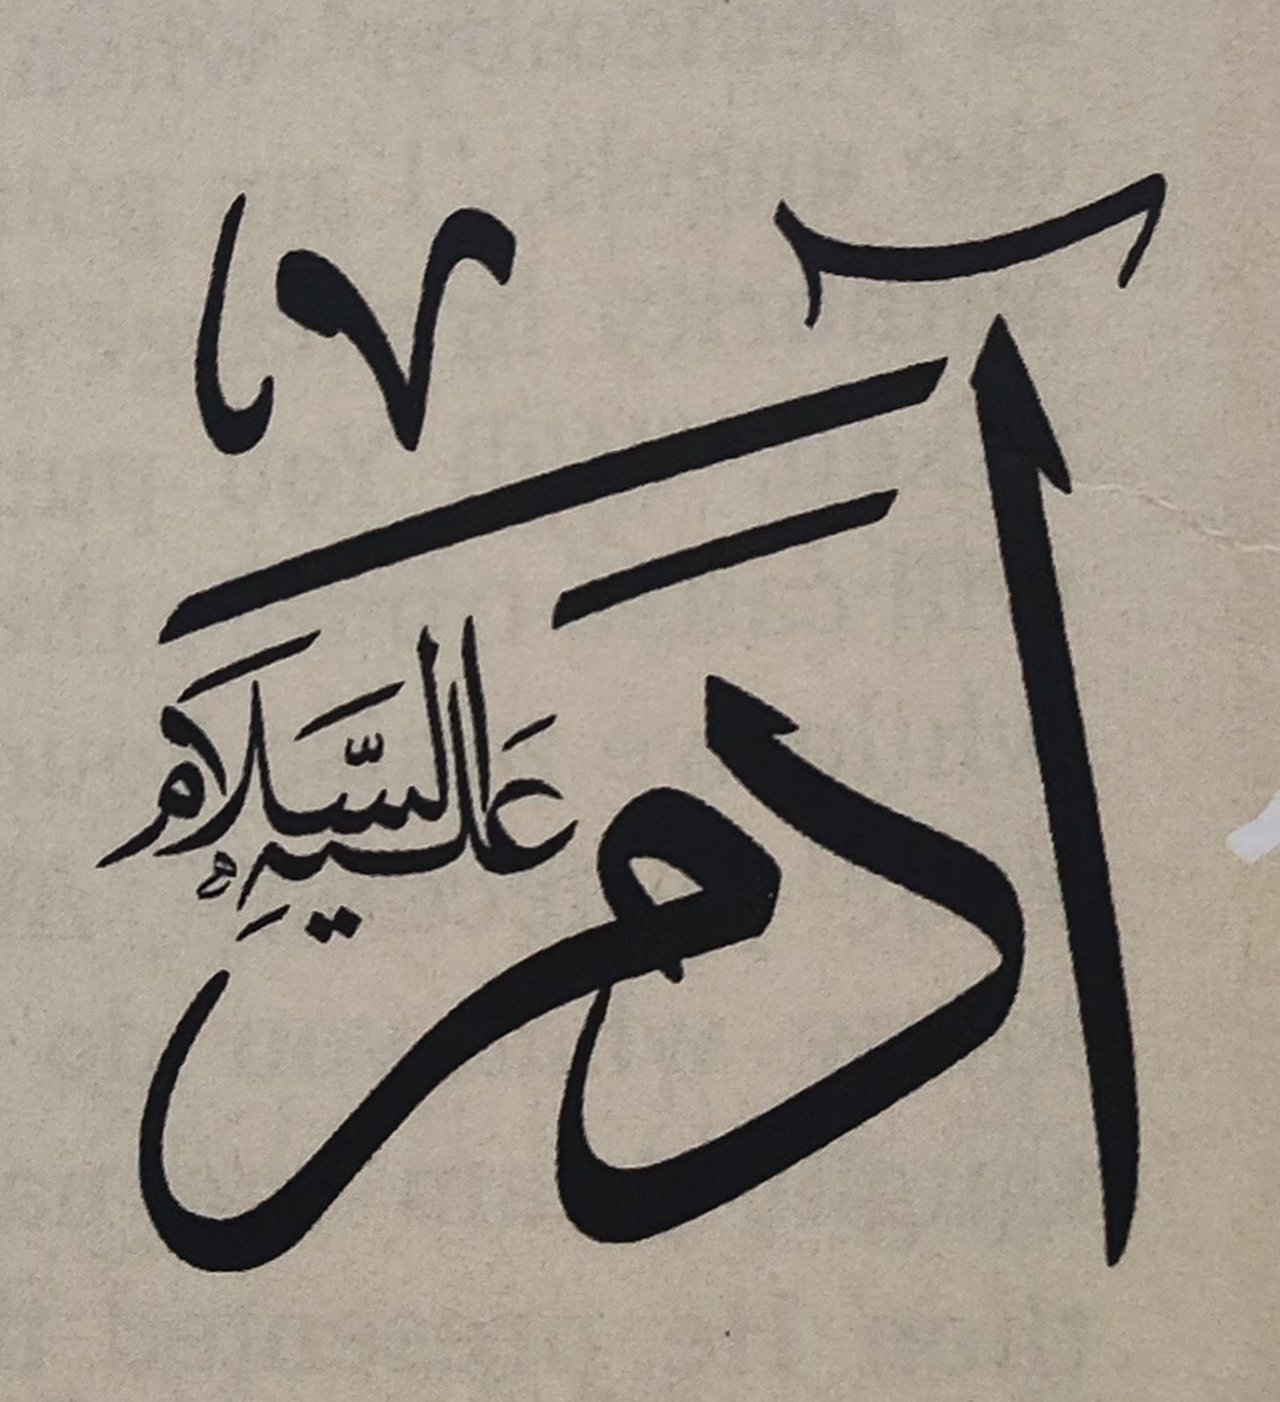 آدَم
عَلَيهِ السَّلَامَ